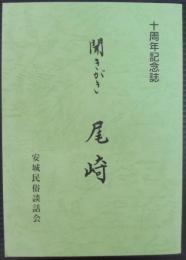 十周年記念誌
聞きがき
尾崎
安城民俗談話会